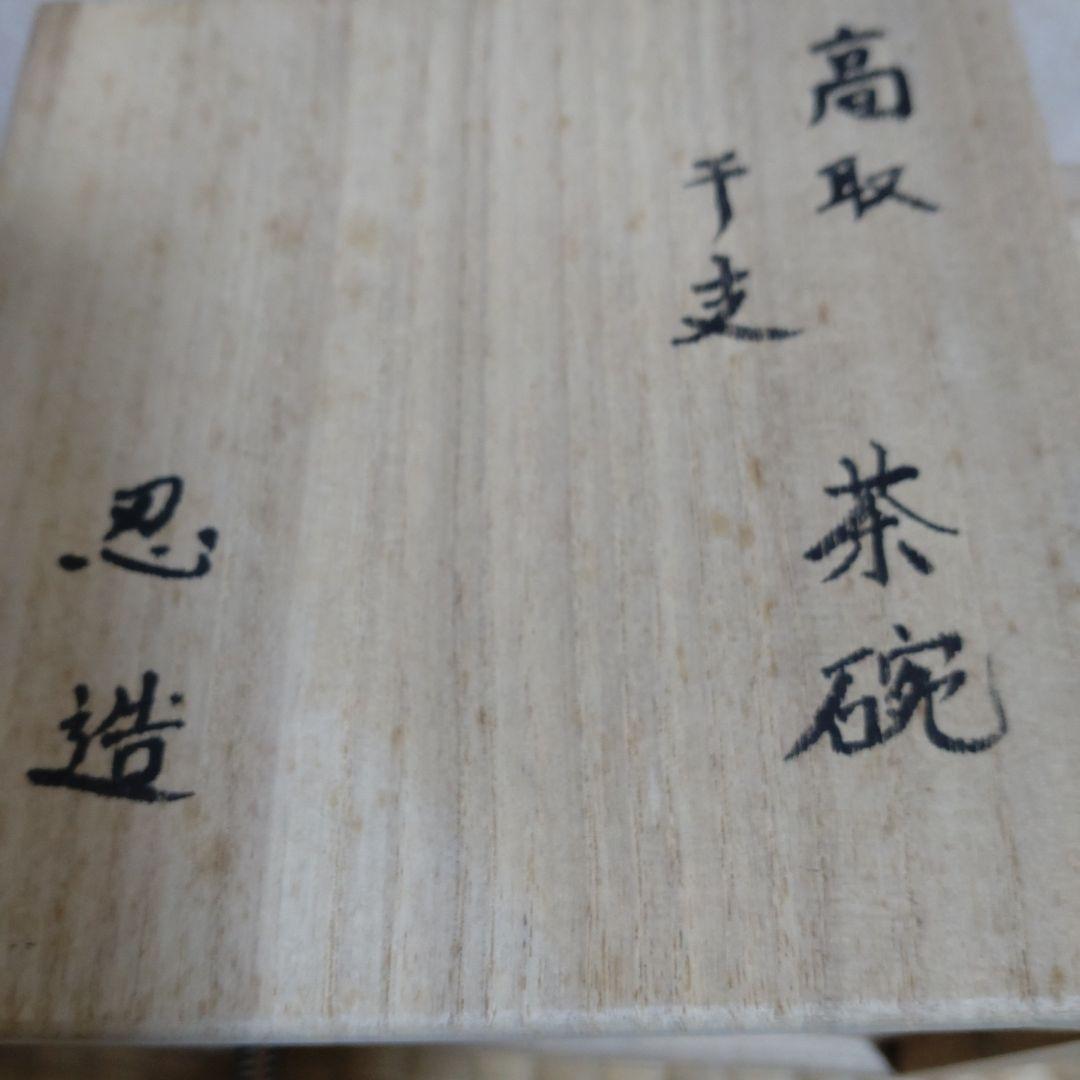 高取
干支
茶碗
忍造